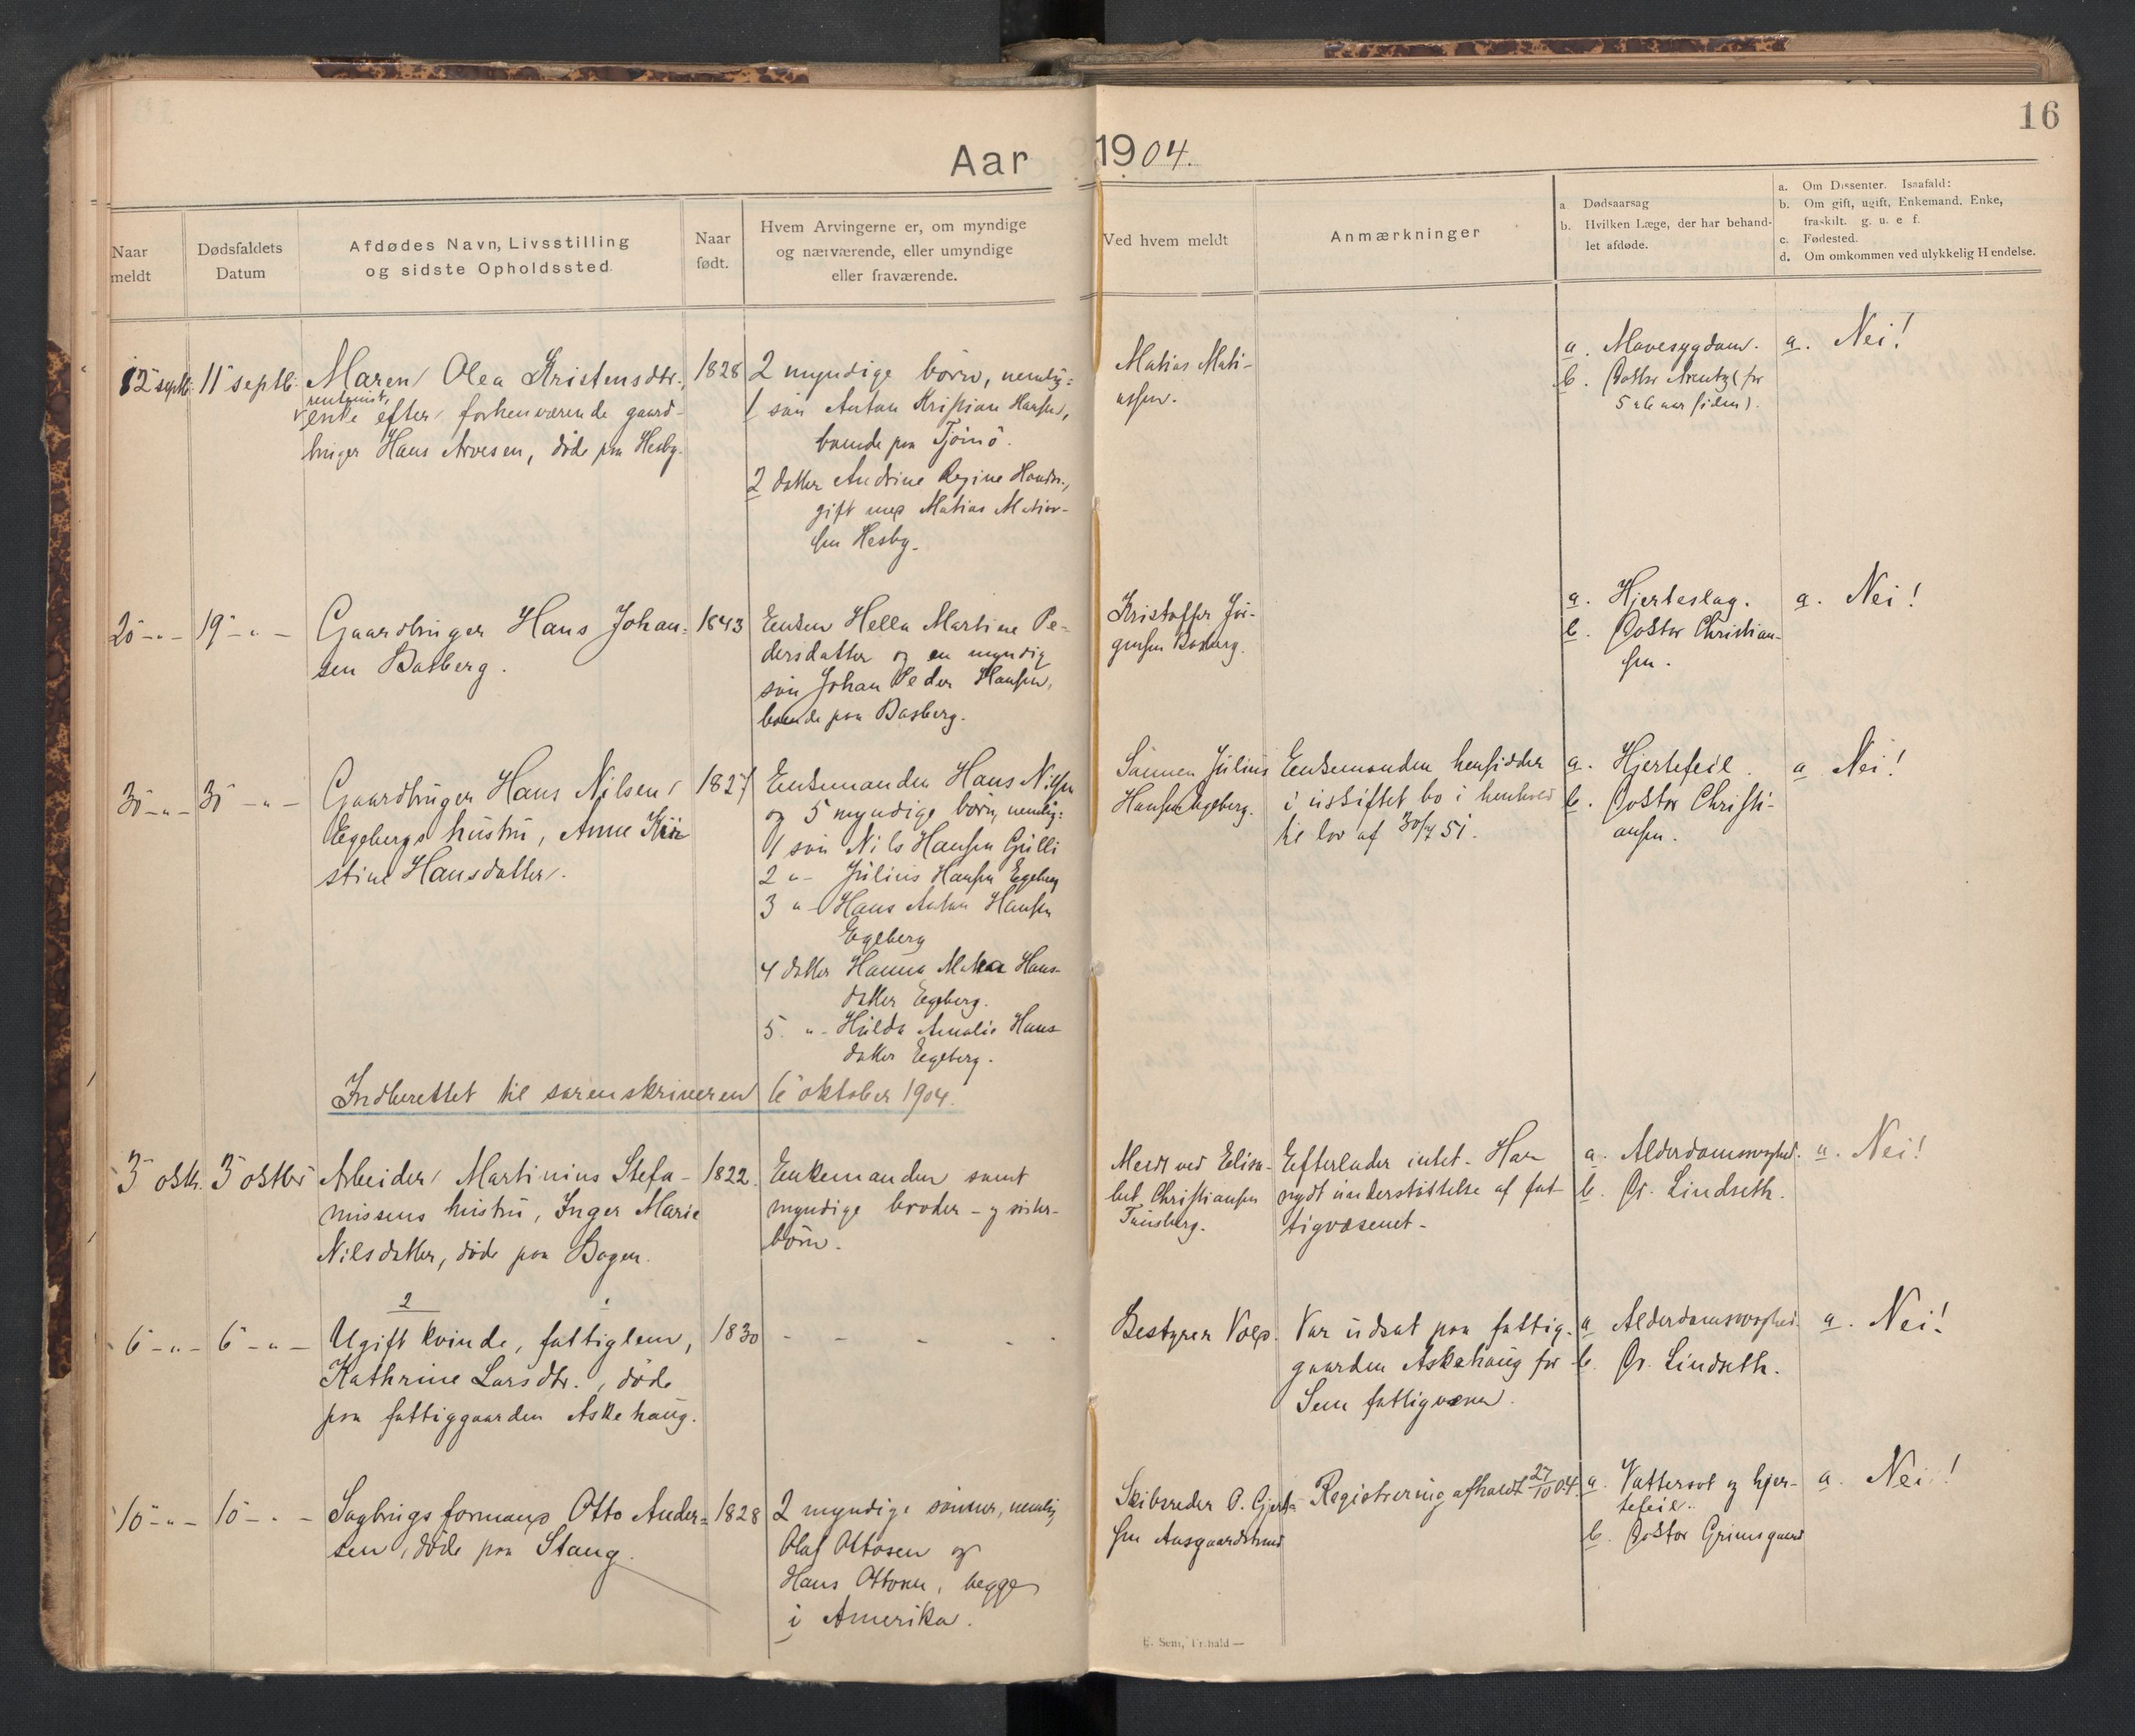 16
Aar 1904.
Naar
meldt
Dødsfaldets
Datum
Afdødes Navn, Livsstilling
og sidste Opholdssted.
Naar
født.
Hvem Arvingerne er, om myndige
og nærværende, eller umyndige
eller fraværende.
Ved hvem meldt
Anmærkninger
a. Dødsaarsag
b. Hvilken Læge, der har behand-
let afdøde.
a. Om Dissenter. Isaafald:
b. Om gift, ugift, Enkemand, Enke,
fraskilt. g. u. e f.
c. Fødested.
d. Om omkommen ved ulykkelig Hendelse.
12 septbr. 11 septbr.
Maren Olea Kristensdtr.,
rentenist,
enke efter forhenværende gaard-
bruger Hans Arvesen, död paa Hesby.
1828
2 myndige börn, nemlig:
1 sön Anton Kristian Hansen,
boende paa Tjömö.
2 datter Andrine Regine Hansdr.,
gift med Matias Matias-
sen Hesby.
Matias Mati-
assen.
a. Mavesygdom.
b. Doktor Arentz (for
5 a 6 aar siden).
a. Nei!
20 -"- 19 -"-
Gaardbruger Hans Johan-
sen Basberg.
1843
Enken Hella Martine Pe-
dersdatter og en myndig
sön Johan Peder Hansen,
boende paa Basberg.
Kristoffer Jör-
gensen Basberg.
a. Hjerteslag.
b. Doktor Christian-
sen.
a. Nei!
30 -"- 30 -"-
Gaardbruger Hans Nilsen
Egebergs hustru, Anne Kri
stine Hansdatter.
1827
Enkemanden Hans Nilsen
og 5 myndige börn, nemlig:
1 sön Nils Hansen Gulli
2 "- Julius Hansen Egeberg
3 "- Hans Anton Hansen
Egeberg
4 datter Hanna Hans-
datter Egeberg.
5. "- Hulda Amalie Hans-
datter Egeberg.
Sönnen Julius
Hansen Egeberg.
Enkemanden hensidder
i uskiftet bo i henhold
til lov af 30/7 51.
a. Hjertefeil.
b. Doktor Christi-
ansen.
a Nei!
Indberettet til sorenskriveren 6 oktober 1904.
3 oktb. 3 oktbr
Arbeider Martinius Stefa-
nussens hustru, Inger Marie
Nilsdatter, död paa Bogen.
1822.
Enkemanden samt
myndige broder- og söster-
börn.
Meldt ved Elisa-
bet Christiansen
Tönsberg.
Efterlader intet. Har
nydt understöttelse af fat-
tigvæsenet.
a. Alderdomssvaghed.
b. Dr. Lindseth.
a. Nei!
6 -"- 6 -"-
2
Ugift kvinde, fattiglem,
Kathrine Larsdtr., död
paa fattiggaarden Askehaug.
1830
- - - - -
Bestyrer Vold.
Var udsat paa fattig-
gaarden Askehaug for
Sem fattigvæsen.
a Alderdomssvaghed.
b. Dr. Lindseth.
a. Nei!
10 -"- 10 -"-
Sagbrugsformand Otto Ander-
sen, död paa Stang.
1828
2 myndige sönner, nemlig
Olaf Ottosen og
Hans Ottosen, begge
i Amerika.
Skibsreder O. Gjert-
sen Aasgaardstrand
Registrering afholdt 27/10 04.
a. Vattersot og hjer-
tefeil.
b. Doktor Grimsgaard
a. Nei!
E. Sem, Fr.hald —